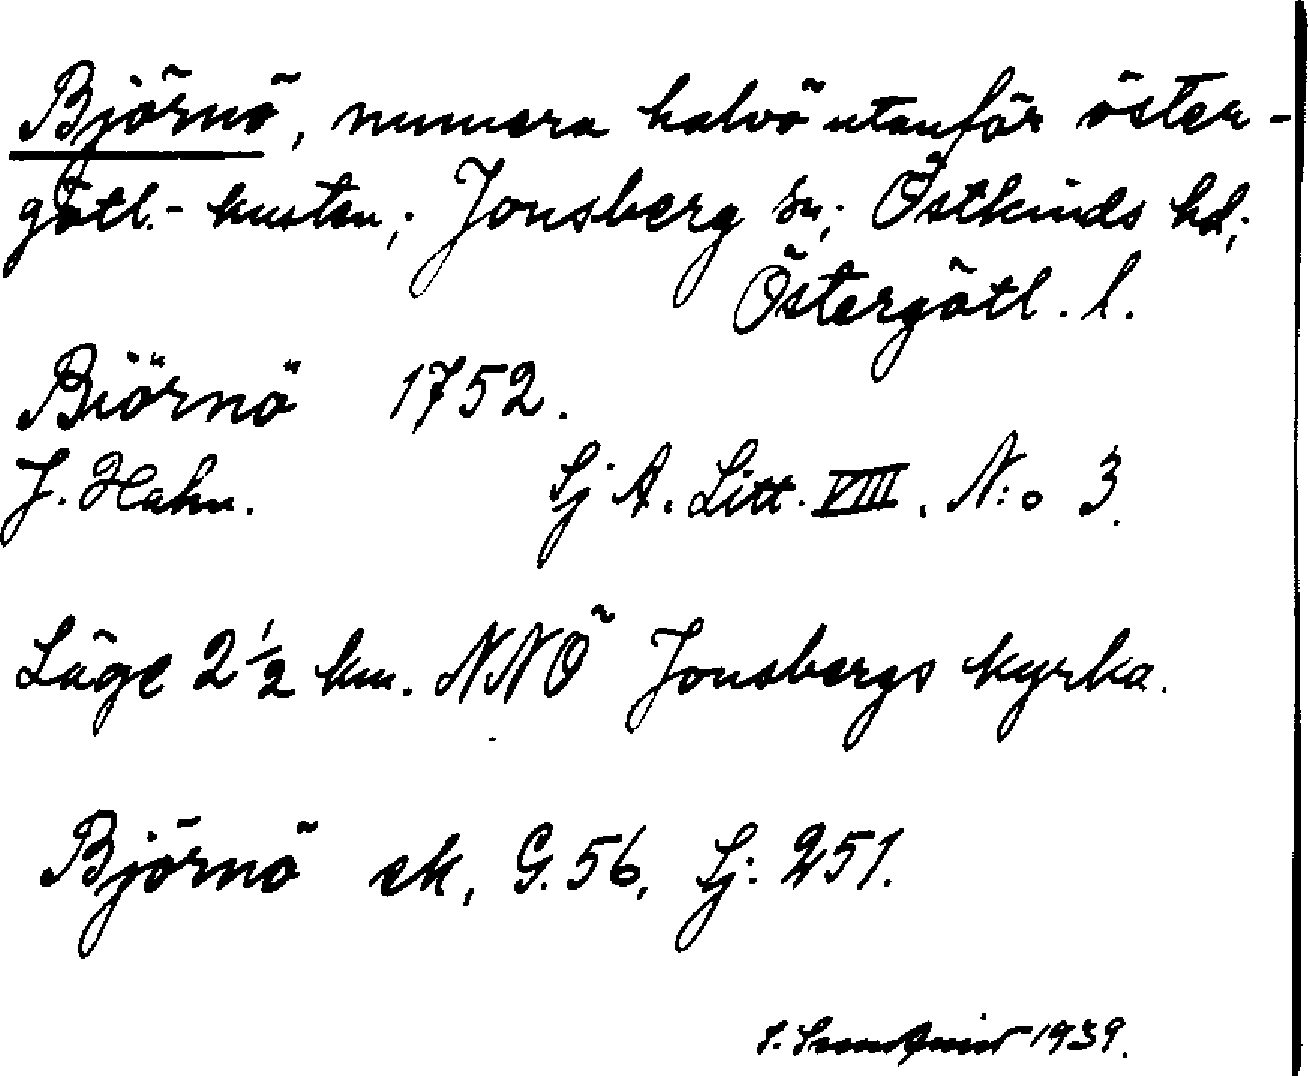 Björnö, numera halvö utanför öster-
götl.- kusten; Jonsberg sn; Östkinds hd;
Östergötl. l.
Biörnö 1752.
J. Hahn. Sj A. Litt. VIII. N:o 3.
Läge 2 1/2 km. NNÖ Jonsbergs kyrka.
Björnö ek, G. 56, Sj: 251.
1939.